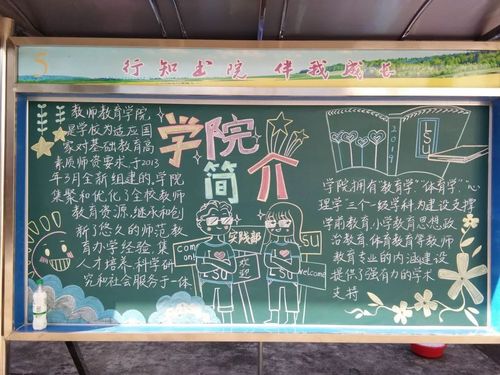 5
行知书院 伴我成长
教师教育学院,
是学校为适应国
家对基础教育高
素质师资要求,于2013
年3月全新组建的,学院
集聚和优化了全校教师
教育资源,继承和创
新了悠久的师范教
育办学经验,集
人才培养、科学研
究和社会服务于一体
学院
简介
实践部
Come
on!
ESU
欢迎
ESU
SU
welcome
2019
学院拥有"教育学""体育学""心
理学"三个一级学科,为建设支撑
学前教育,小学教育,思想政
治教育,体育教育等教师
教育专业的内涵建设
提供了强有力的学术
支持